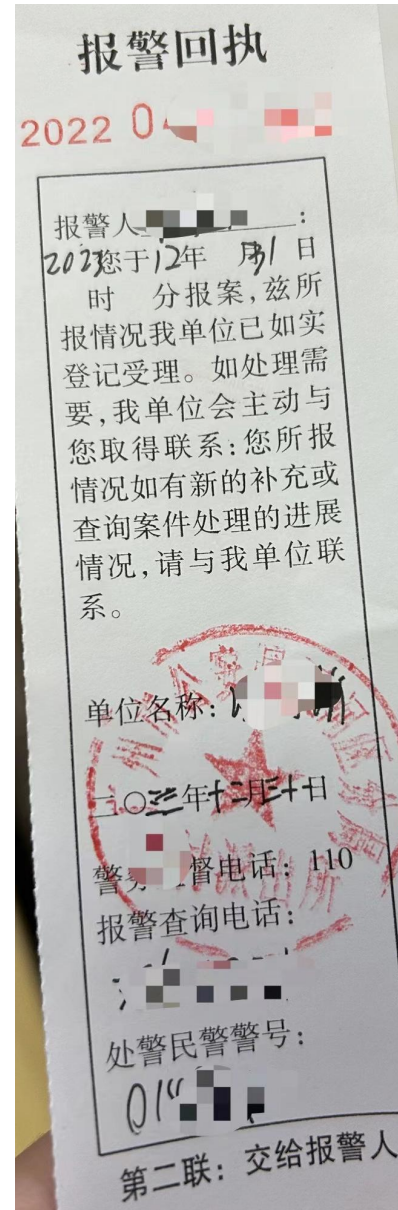 报警回执
2022 0
报警人 :
2023您于12年 月31日
时 分报案,兹所
报情况我单位已如实
登记受理。如处理需
要,我单位会主动与
您取得联系:您所报
情况如有新的补充或
查询案件处理的进展
情况,请与我单位联
系。
单位名称:
二〇二三年十二月三十日
警 督电话:110
报警查询电话:
处警民警警号:
01
第二联:交给报警人